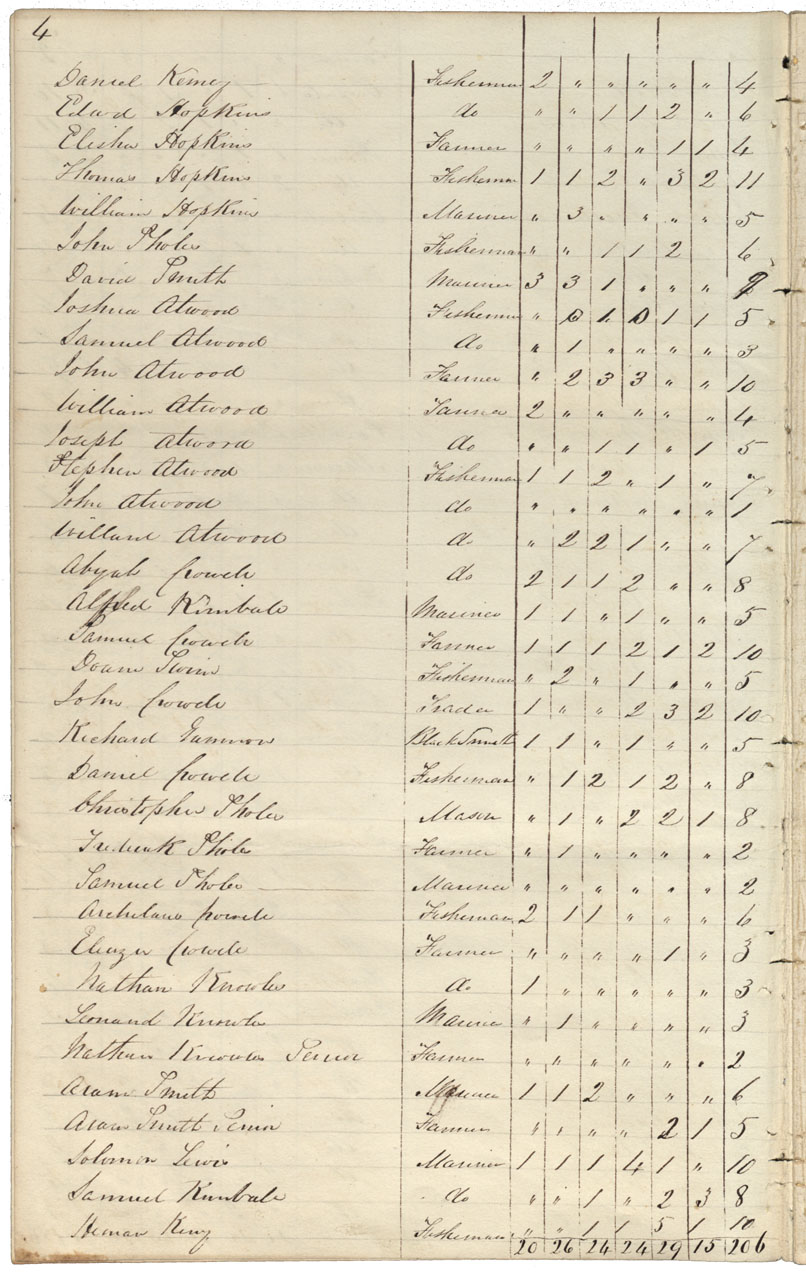 4
Daniel Keney Fisherman 2 " " " " " 4
Edwd Hopkins do " " 1 1 2 " 6
Elisha Hopkins Farmer " " " " 1 1 4
Thomas Hopkins Fisherman 1 1 2 " 3 2 11
William Hopkins Mariner " 3 " " " " 5
John Sholes Fisherman " " 1 1 2 6
David Smith Mariner 3 3 1 " " " 9
Joshua Atwood Fisherman " 0 1 0 1 1 5
Samuel Atwood do " 1 " " " " 3
John Atwood Farmer " 2 3 3 " " 10
William Atwood Tanner 2 " " " " " 4
Joseph Atwood do " " 1 1 " 1 5
Stephen Atwood Fisherman 1 1 2 " 1 " 7
John Atwood do " " " " " " 1
Willard Atwood do " 2 2 1 " " 7
Abijah Crowell do 2 1 1 2 " " 8
Alfred Kimball Mariner 1 1 " 1 " " 5
Samuel Crowell Farmer 1 1 1 2 1 2 10
Doane Swim Fisherman " 2 " 1 " " 5
John Crowell Trader 1 " " 2 3 2 10
Richard Gammon BlackSmith 1 1 " 1 " " 5
Daniel Crowell Fisherman " 1 2 1 2 " 8
Christopher Sholes Mason " 1 " 2 2 1 8
Frederick Sholes Farmer " 1 " " " " 2
Samuel Sholes Mariner " " " " " " 2
Archelaus Crowell Fisherman 2 1 1 " " " 6
Eleazer Crowell Farmer " " " " 1 " 3
Nathan Knowles do 1 " " " " " 3
Leonard Knowles Mariner " 1 " " " " 3
Nathan Knowles Senior Farmer " " " " " " 2
Aram Smith Mariner 1 1 2 " " " 6
Aram Smith Senior Farmer " " " " 2 1 5
Solomon Lewis Mariner 1 1 1 4 1 " 10
Samuel Kimball do " " 1 " 2 3 8
Heman Keny Fisherman " " 1 1 5 1 10
20 26 24 24 29 15 206